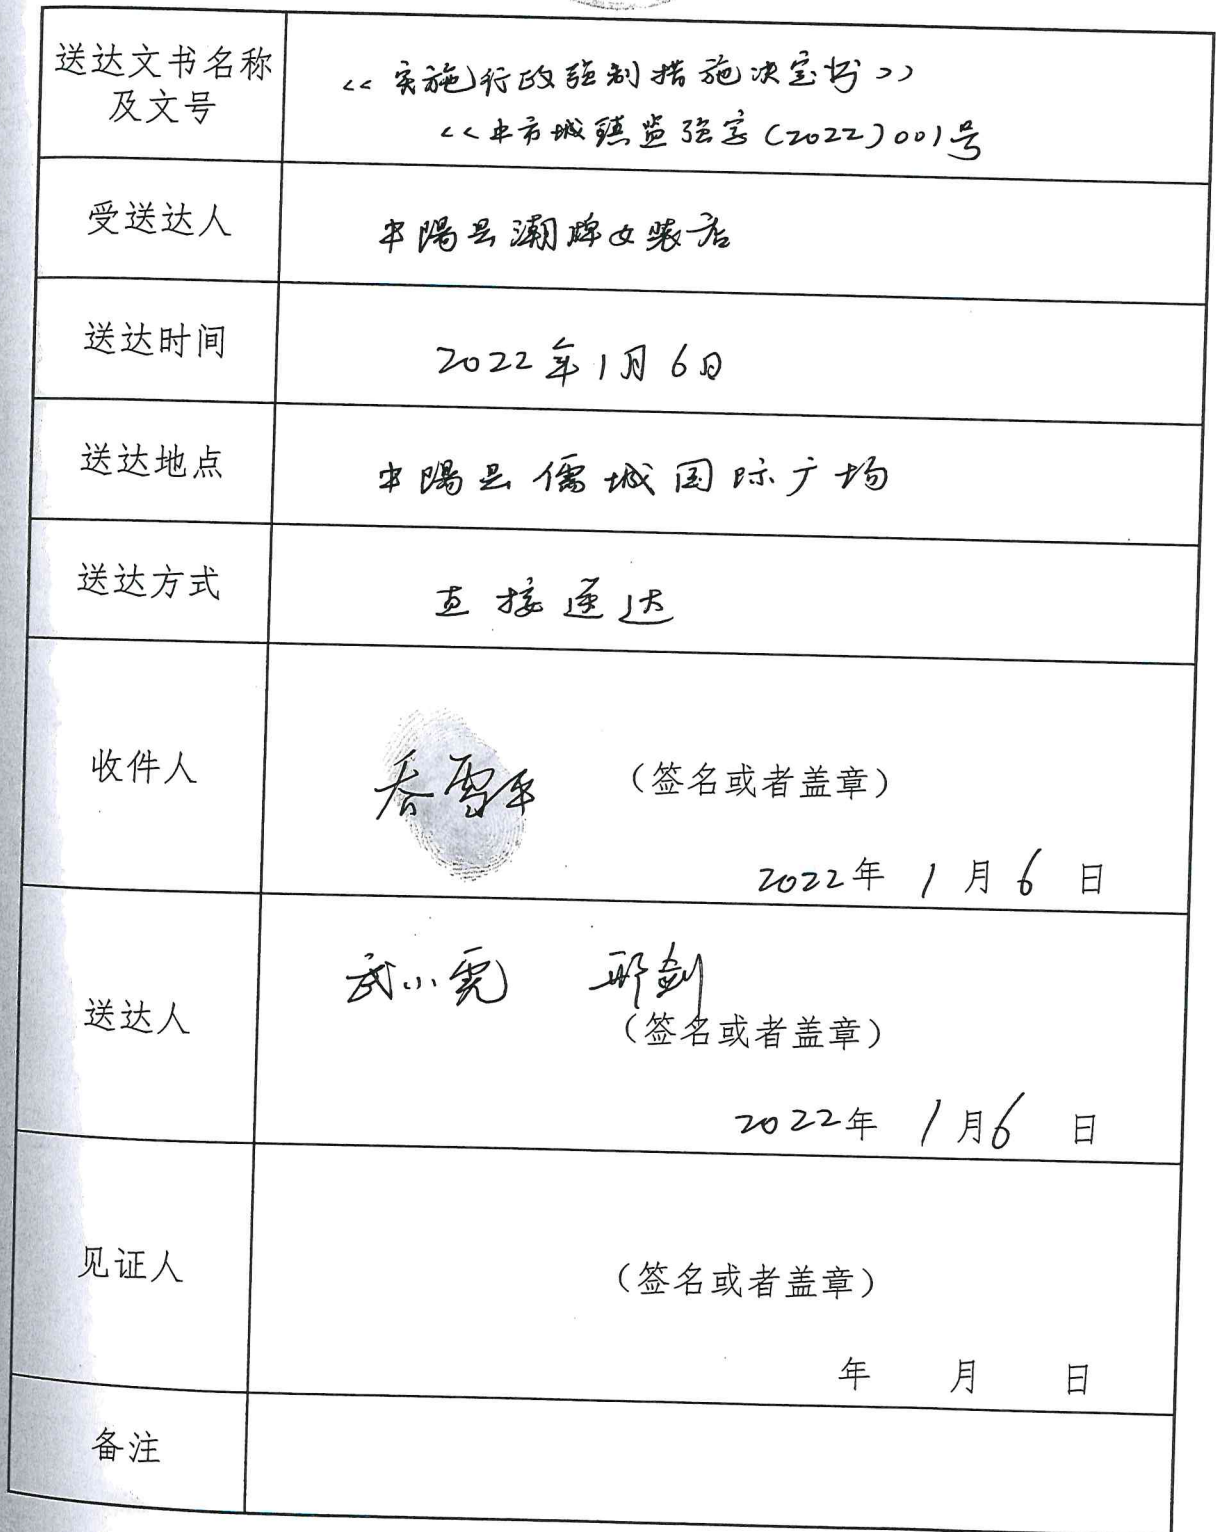 送达文书名称
及文号
<<实施行政强制措施决定书>>
<<中市城镇监强字(2022)001号
受送达人
中陽县潮牌女装店
送达时间
2022年1月6日
送达地点
中陽县儒城国际广场
送达方式
直接送达
收件人
乔雪平 (签名或者盖章)
2022年 1月6 日
送达人
武小虎 邢剑
(签名或者盖章)
2022年 1月6 日
见证人
(签名或者盖章)
年 月 日
备注